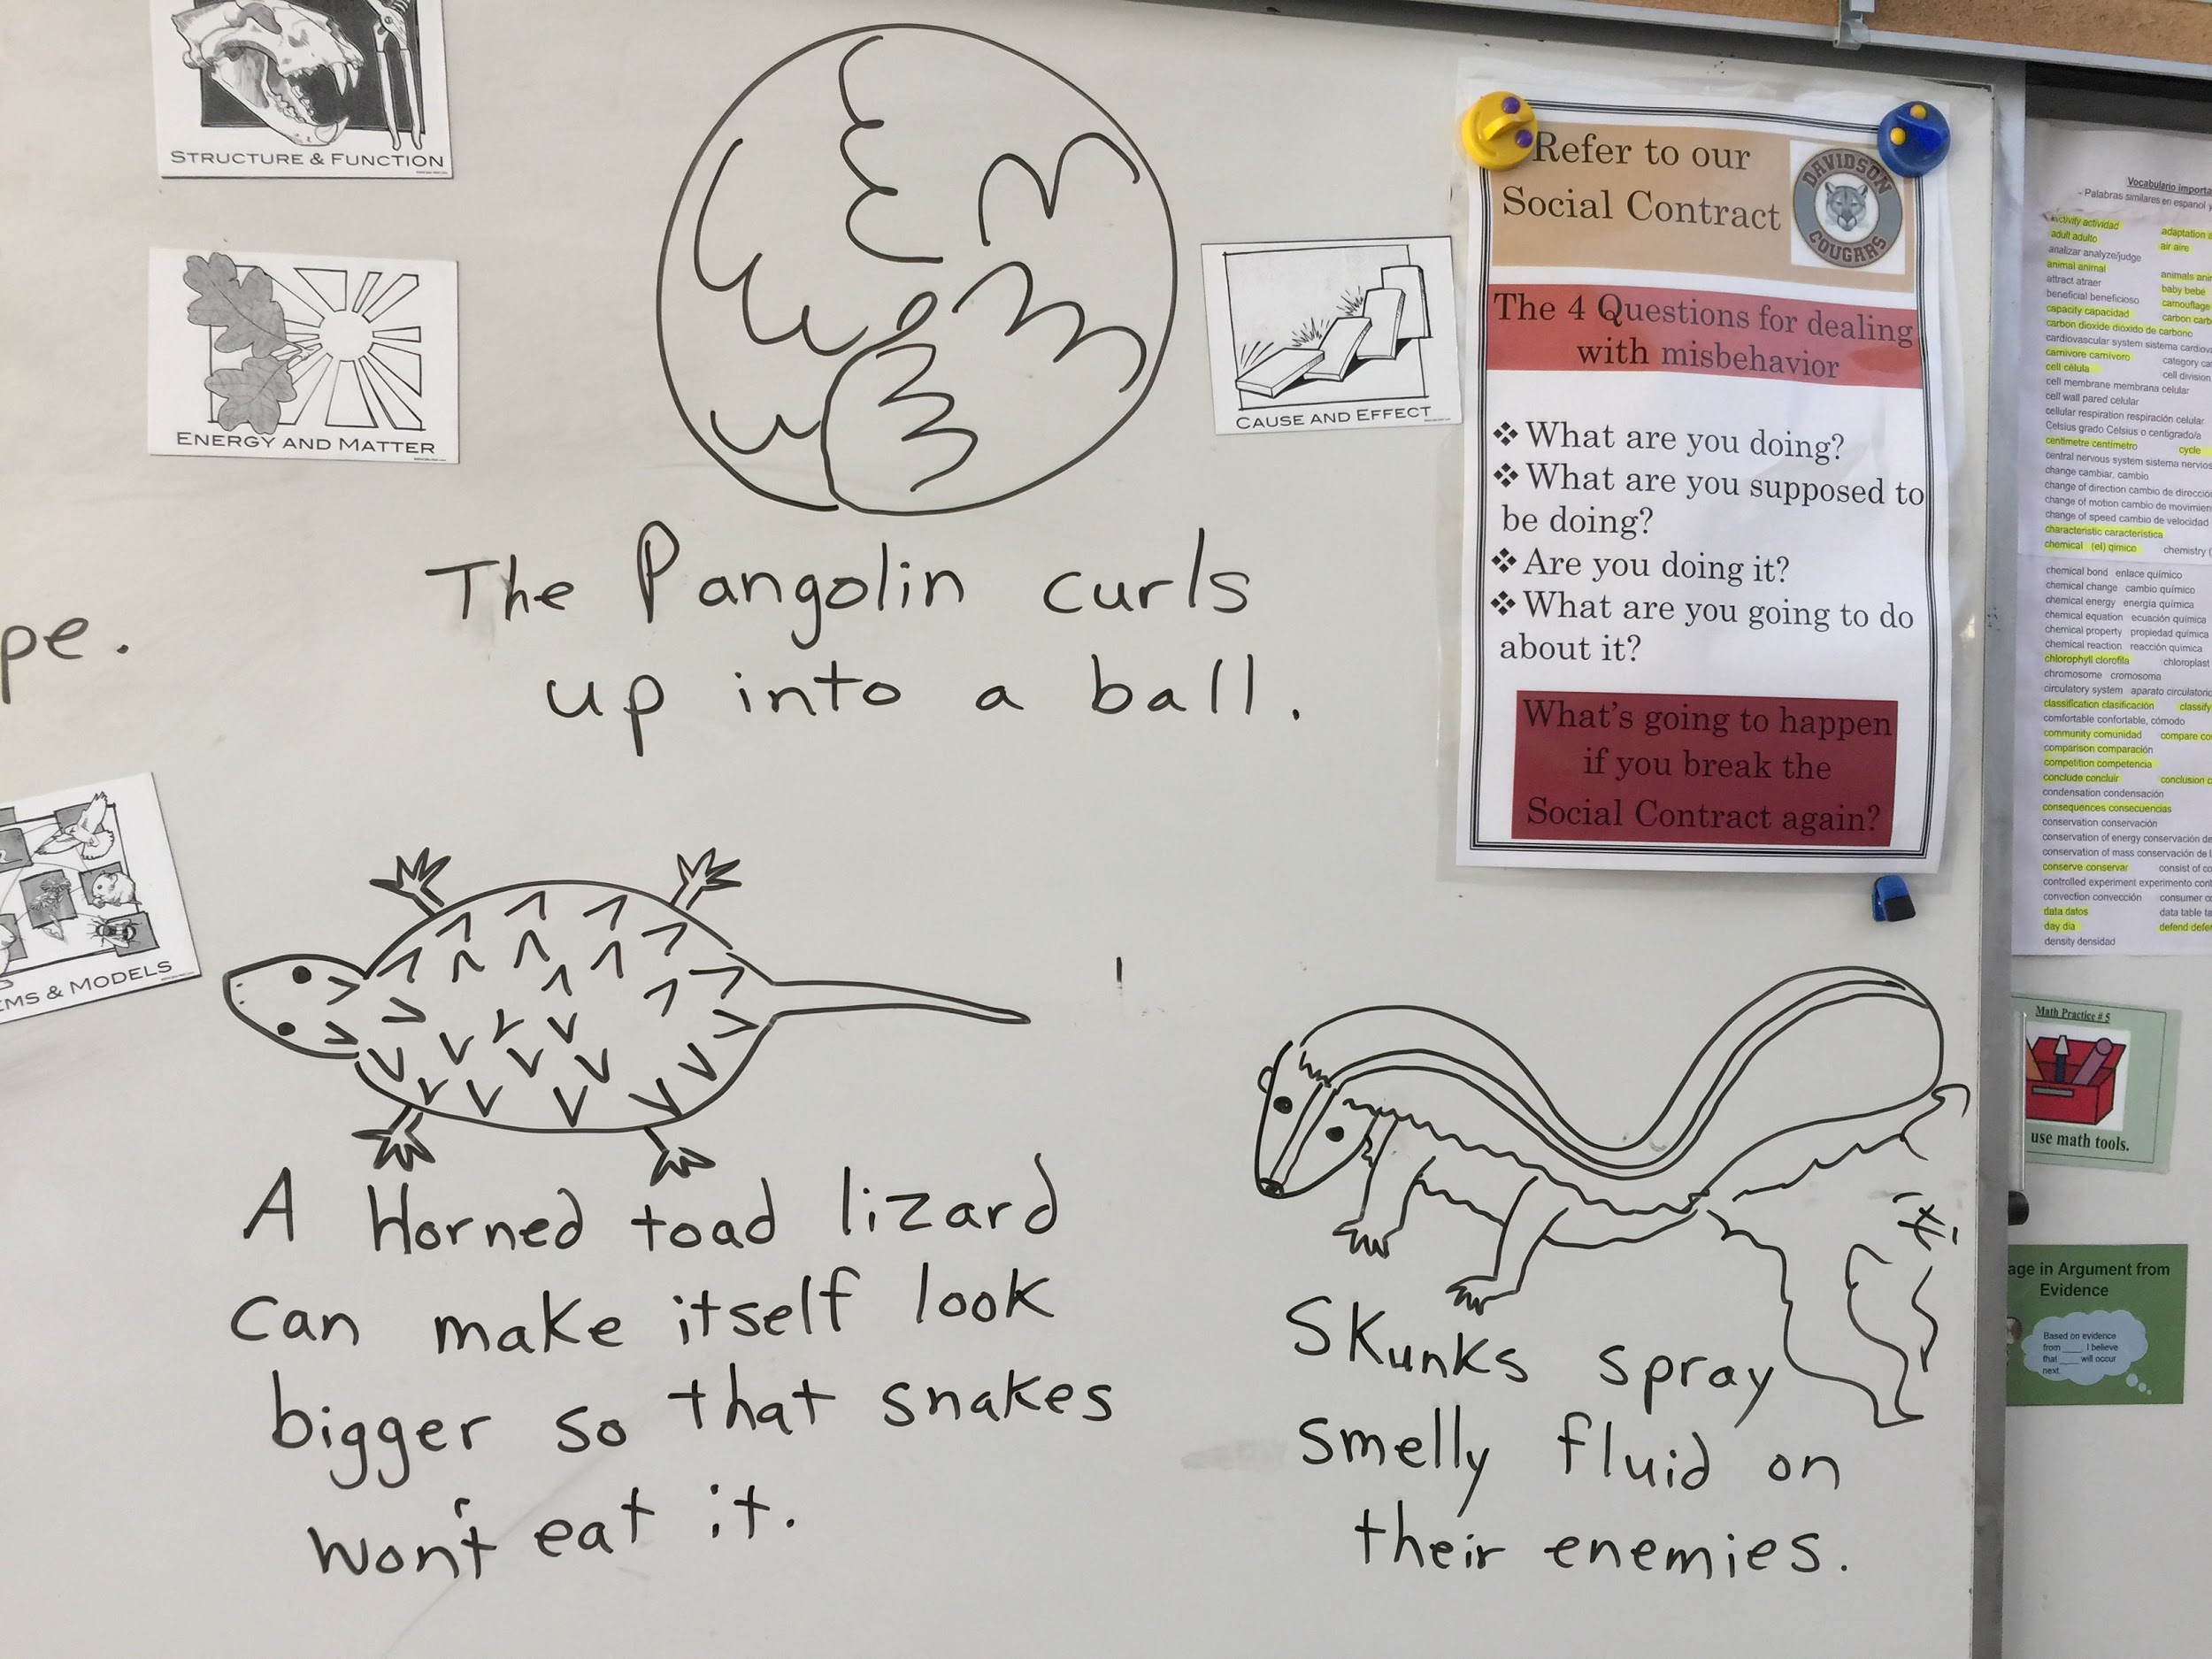 STRUCTURE & FUNCTION
ENERGY AND MATTER
CAUSE AND EFFECT
The Pangolin curls
up into a ball.
pe.
EMS & MODELS
A Horned toad lizard
can make itself look
bigger so that snakes
won't eat it.
Skunks spray
smelly fluid on
their enemies.
Refer to our
Social Contract
DAVIDSON
COUGARS
The 4 Questions for dealing
with misbehavior
❖ What are you doing?
❖ What are you supposed to
be doing?
❖ Are you doing it?
❖ What are you going to do
about it?
What's going to happen
if you break the
Social Contract again?
Vocabulario importa
- Palabras similares en espanol y
activity actividad adaptation a
adult adulto air aire
analizar analyze/judge
animal animal animals ani
attract atraer baby bebé
beneficial beneficioso camouflage
capacity capacidad carbon carb
carbon dioxide dióxido de carbono
cardiovascular system sistema cardiov
carnivore carnívoro category ca
cell célula cell division
cell membrane membrana celular
cell wall pared celular
cellular respiration respiración celular
Celsius grado Celsius o centígrado/a
centimetre centímetro cycle
central nervous system sistema nervios
change cambiar, cambio
change of direction cambio de direcció
change of motion cambio de movimien
change of speed cambio de velocidad
characteristic característica
chemical (el) qímico chemistry (
chemical bond enlace químico
chemical change cambio químico
chemical energy energía química
chemical equation ecuación química
chemical property propiedad química
chemical reaction reacción química
chlorophyll clorofila chloroplast
chromosome cromosoma
circulatory system aparato circulatorio
classification clasificación classify
comfortable confortable, cómodo
community comunidad compare co
comparison comparación
competition competencia
conclude concluir conclusion c
condensation condensación
consequences consecuencias
conservation conservación
conservation of energy conservación de
conservation of mass conservación de l
conserve conservar consist of co
controlled experiment experimento cont
convection convección consumer c
data datos data table ta
day día defend defe
density densidad
Math Practice # 5
use math tools.
age in Argument from
Evidence
Based on evidence
from ____, I believe
that ____ will occur
next.